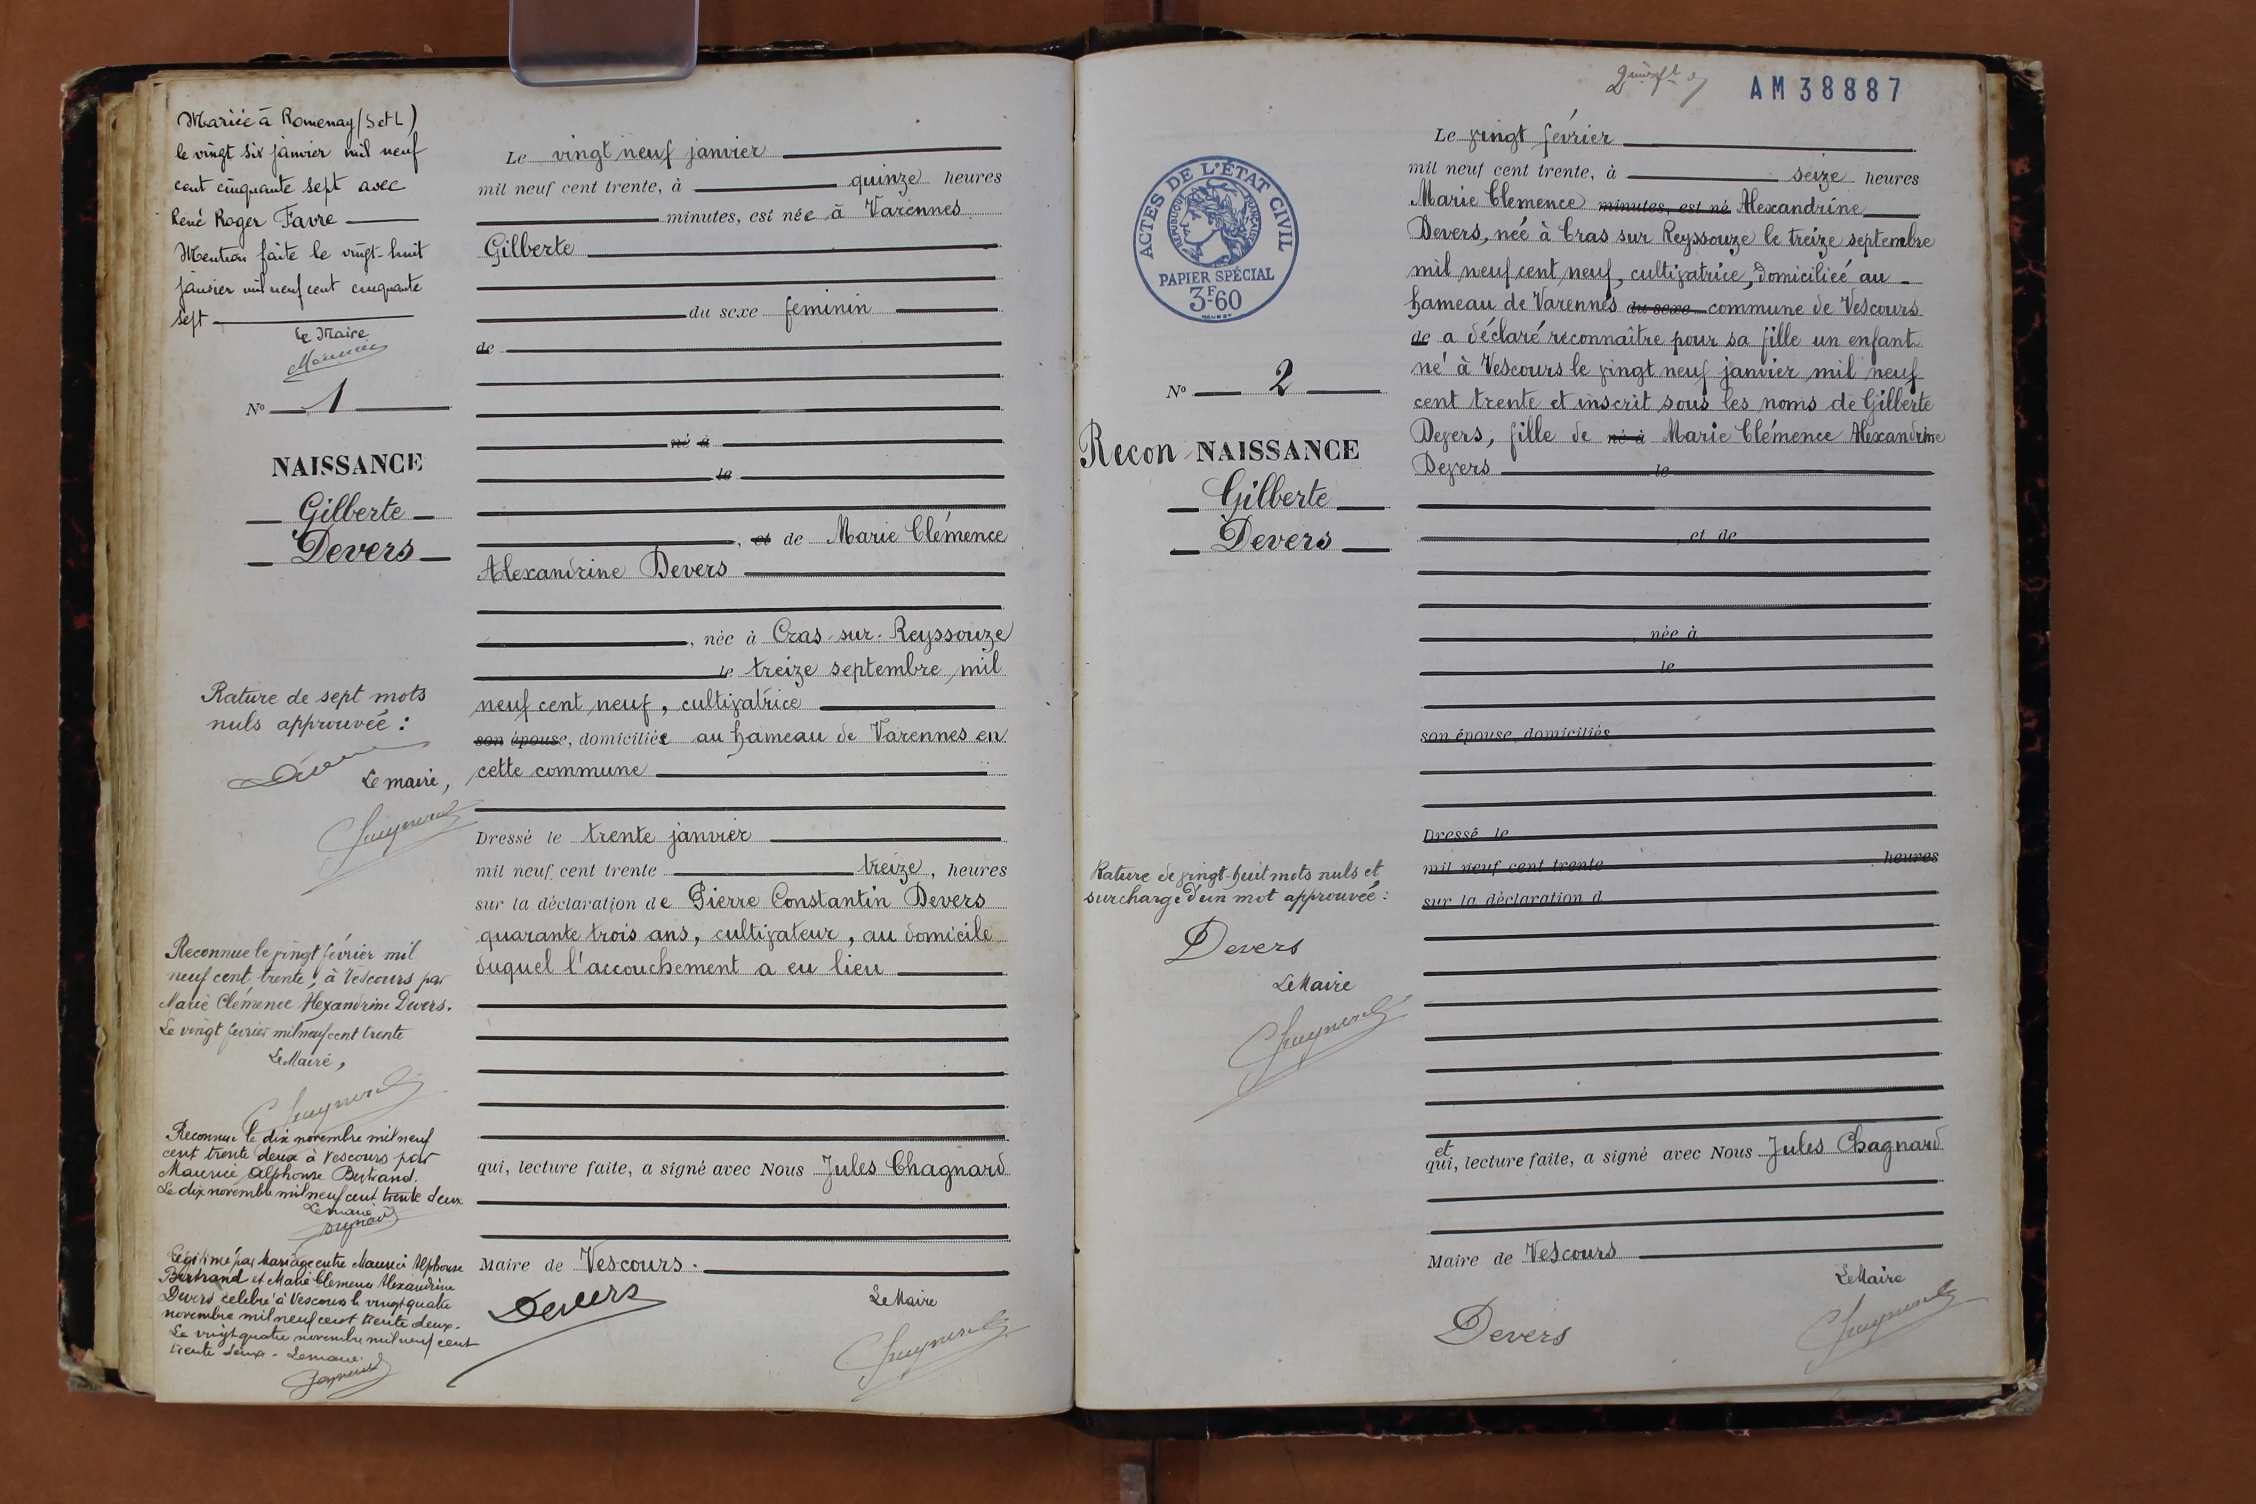 Mariée à Romenay (S et L)
le vingt six janvier mil neuf
cent cinquante sept avec
René Roger Favre
Mention faite le vingt-huit
janvier mil neuf cent cinquante
sept
Le Maire
N° 1
NAISSANCE
Gilberte
Devers
Rature de sept mots
nuls approuvée :
Le maire,
Reconnue le vingt février mil
neuf cent trente, à Vescours par
Marie Clémence Alexandrine Devers.
Le vingt février mil neuf cent trente
Le Maire,
Reconnue le dix novembre mil neuf
cent trente deux à Vescours par
Maurice Alphonse Bertrand.
Le dix novembre mil neuf cent trente deux
Le maire
Légitimé par Mariage entre Maurice Alphonse
Bertrand et Marie Clemence Alexandrine
Devers célébré à Vescours le vingt quatre
novembre mil neuf cent trente deux.
Le vingt quatre novembre mil neuf cent
trente deux. Le maire.
Le vingt neuf janvier
mil neuf cent trente, à quinze heures
minutes, est née à Varennes
Gilberte
du sexe feminin
de
né à
le
, et de Marie Clémence
Alexandrine Devers
, née à Cras-sur-Reyssouze
le treize septembre mil
neuf cent neuf, cultivatrice
son épouse, domiciliée au hameau de Varennes en
cette commune
Dressé le trente janvier
mil neuf cent trente treize, heures
sur la déclaration de Pierre Constantin Devers
quarante trois ans, cultivateur, au domicile
duquel l'accouchement a eu lieu
qui, lecture faite, a signé avec Nous Jules Chagnard
Maire de Vescours.
Devers
Le Maire
AM 38887
ACTES DE L'ÉTAT CIVIL
RÉPUBLIQUE FRANÇAISE
PAPIER SPÉCIAL
3F-60
N° 2
Recon NAISSANCE
Gilberte
Devers
Rature de vingt-huit mots nuls et
surcharge d'un mot approuvée :
Devers
Le Maire
Le vingt février
mil neuf cent trente, à seize heures
Marie Clemence minutes, est né Alexandrine
Devers, née à Cras sur Reyssouze le treize septembre
mil neuf cent neuf, cultivatrice, domiciliée au
hameau de Varennes du sexe commune de Vescours
de a déclaré reconnaître pour sa fille un enfant
né à Vescours le vingt neuf janvier mil neuf
cent trente et inscrit sous les noms de Gilberte
Devers, fille de né à Marie Clémence Alexandrine
Devers le
et de
née à
le
son épouse, domiciliés
Dressé le
mil neuf cent trente heures
sur la déclaration d
et
qui, lecture faite, a signé avec Nous Jules Chagnard
Maire de Vescours
Le Maire
Devers